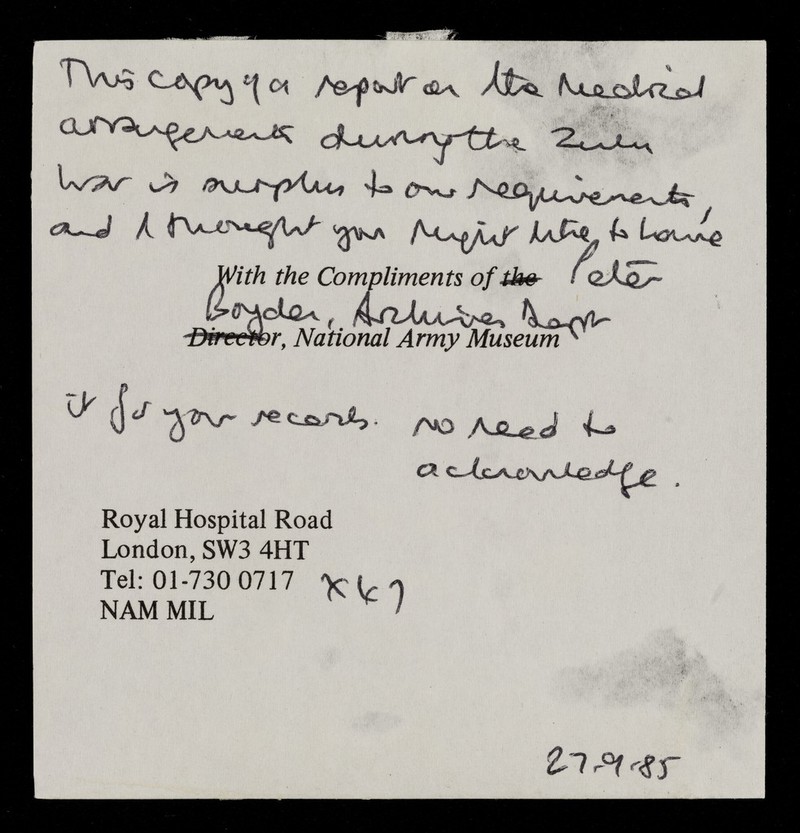 This copy of a report on the Medical
arrangements during the Zulu
War is surplus to our requirements,
and I thought you might like to have
With the Compliments of the Peter
Boyden, Archives Dept
Director, National Army Museum
it for your records. no need to
acknowledge.
Royal Hospital Road
London, SW3 4HT
Tel: 01-730 0717 x47
NAM MIL
27.9.85